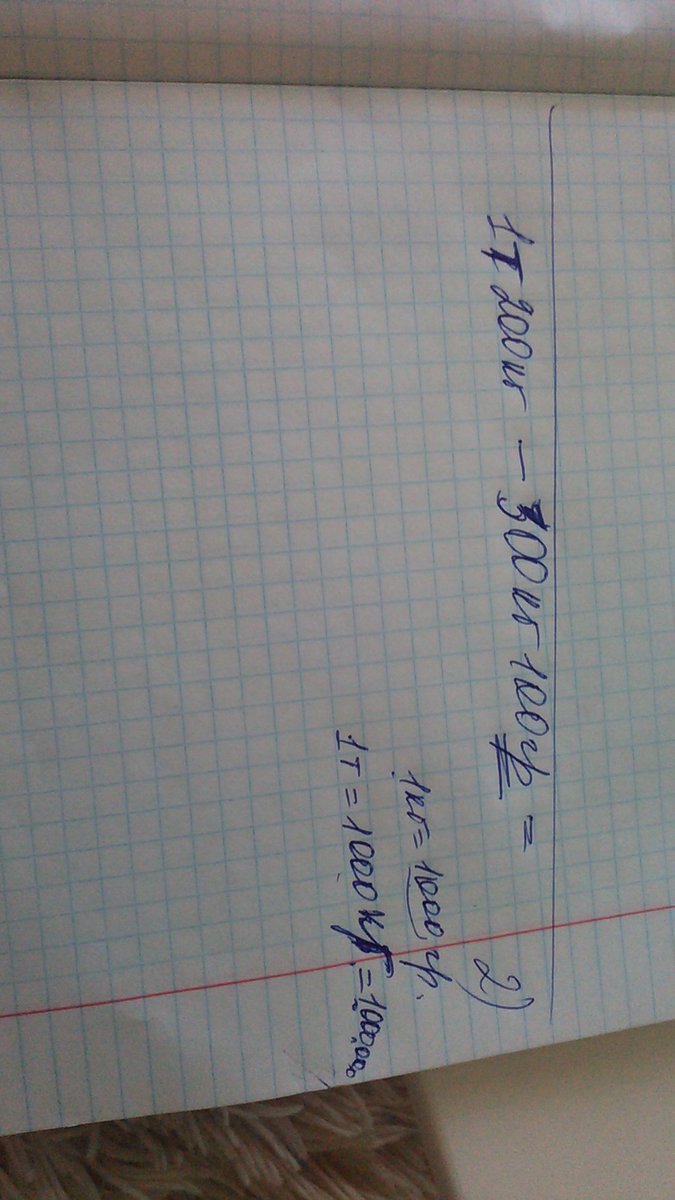 1т 200кг - 300кг 100гр =
2)
1кг = 1000гр.
1т = 1000кг = 1000000